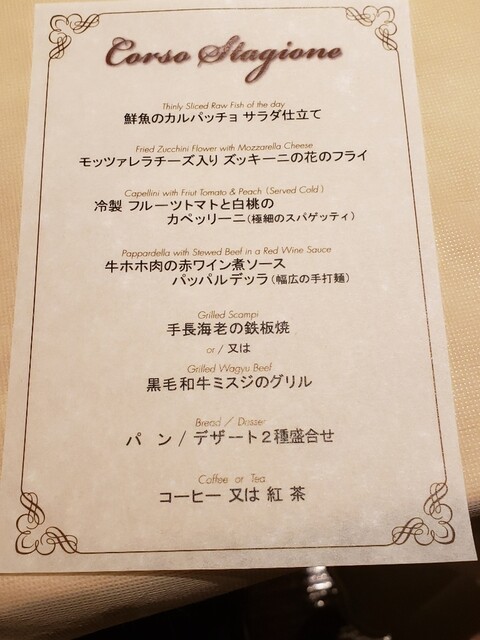 Corso Stagione
Thinly Sliced Raw Fish of the day
鮮魚のカルパッチョ サラダ仕立て
Fried Zucchini Flower with Mozzarella Cheese
モッツァレラチーズ入り ズッキーニの花のフライ
Capellini with Friut Tomato & Peach (Served Cold)
冷製 フルーツトマトと白桃の
カペッリーニ(極細のスパゲッティ)
Pappardella with Stewed Beef in a Red Wine Sauce
牛ホホ肉の赤ワイン煮ソース
パッパルデッラ(幅広の手打麺)
Grilled Scampi
手長海老の鉄板焼
or / 又は
Grilled Wagyu Beef
黒毛和牛ミスジのグリル
Bread / Dusser
パ ン / デザート2種盛合せ
Coffee or Tea
コーヒー 又は 紅 茶